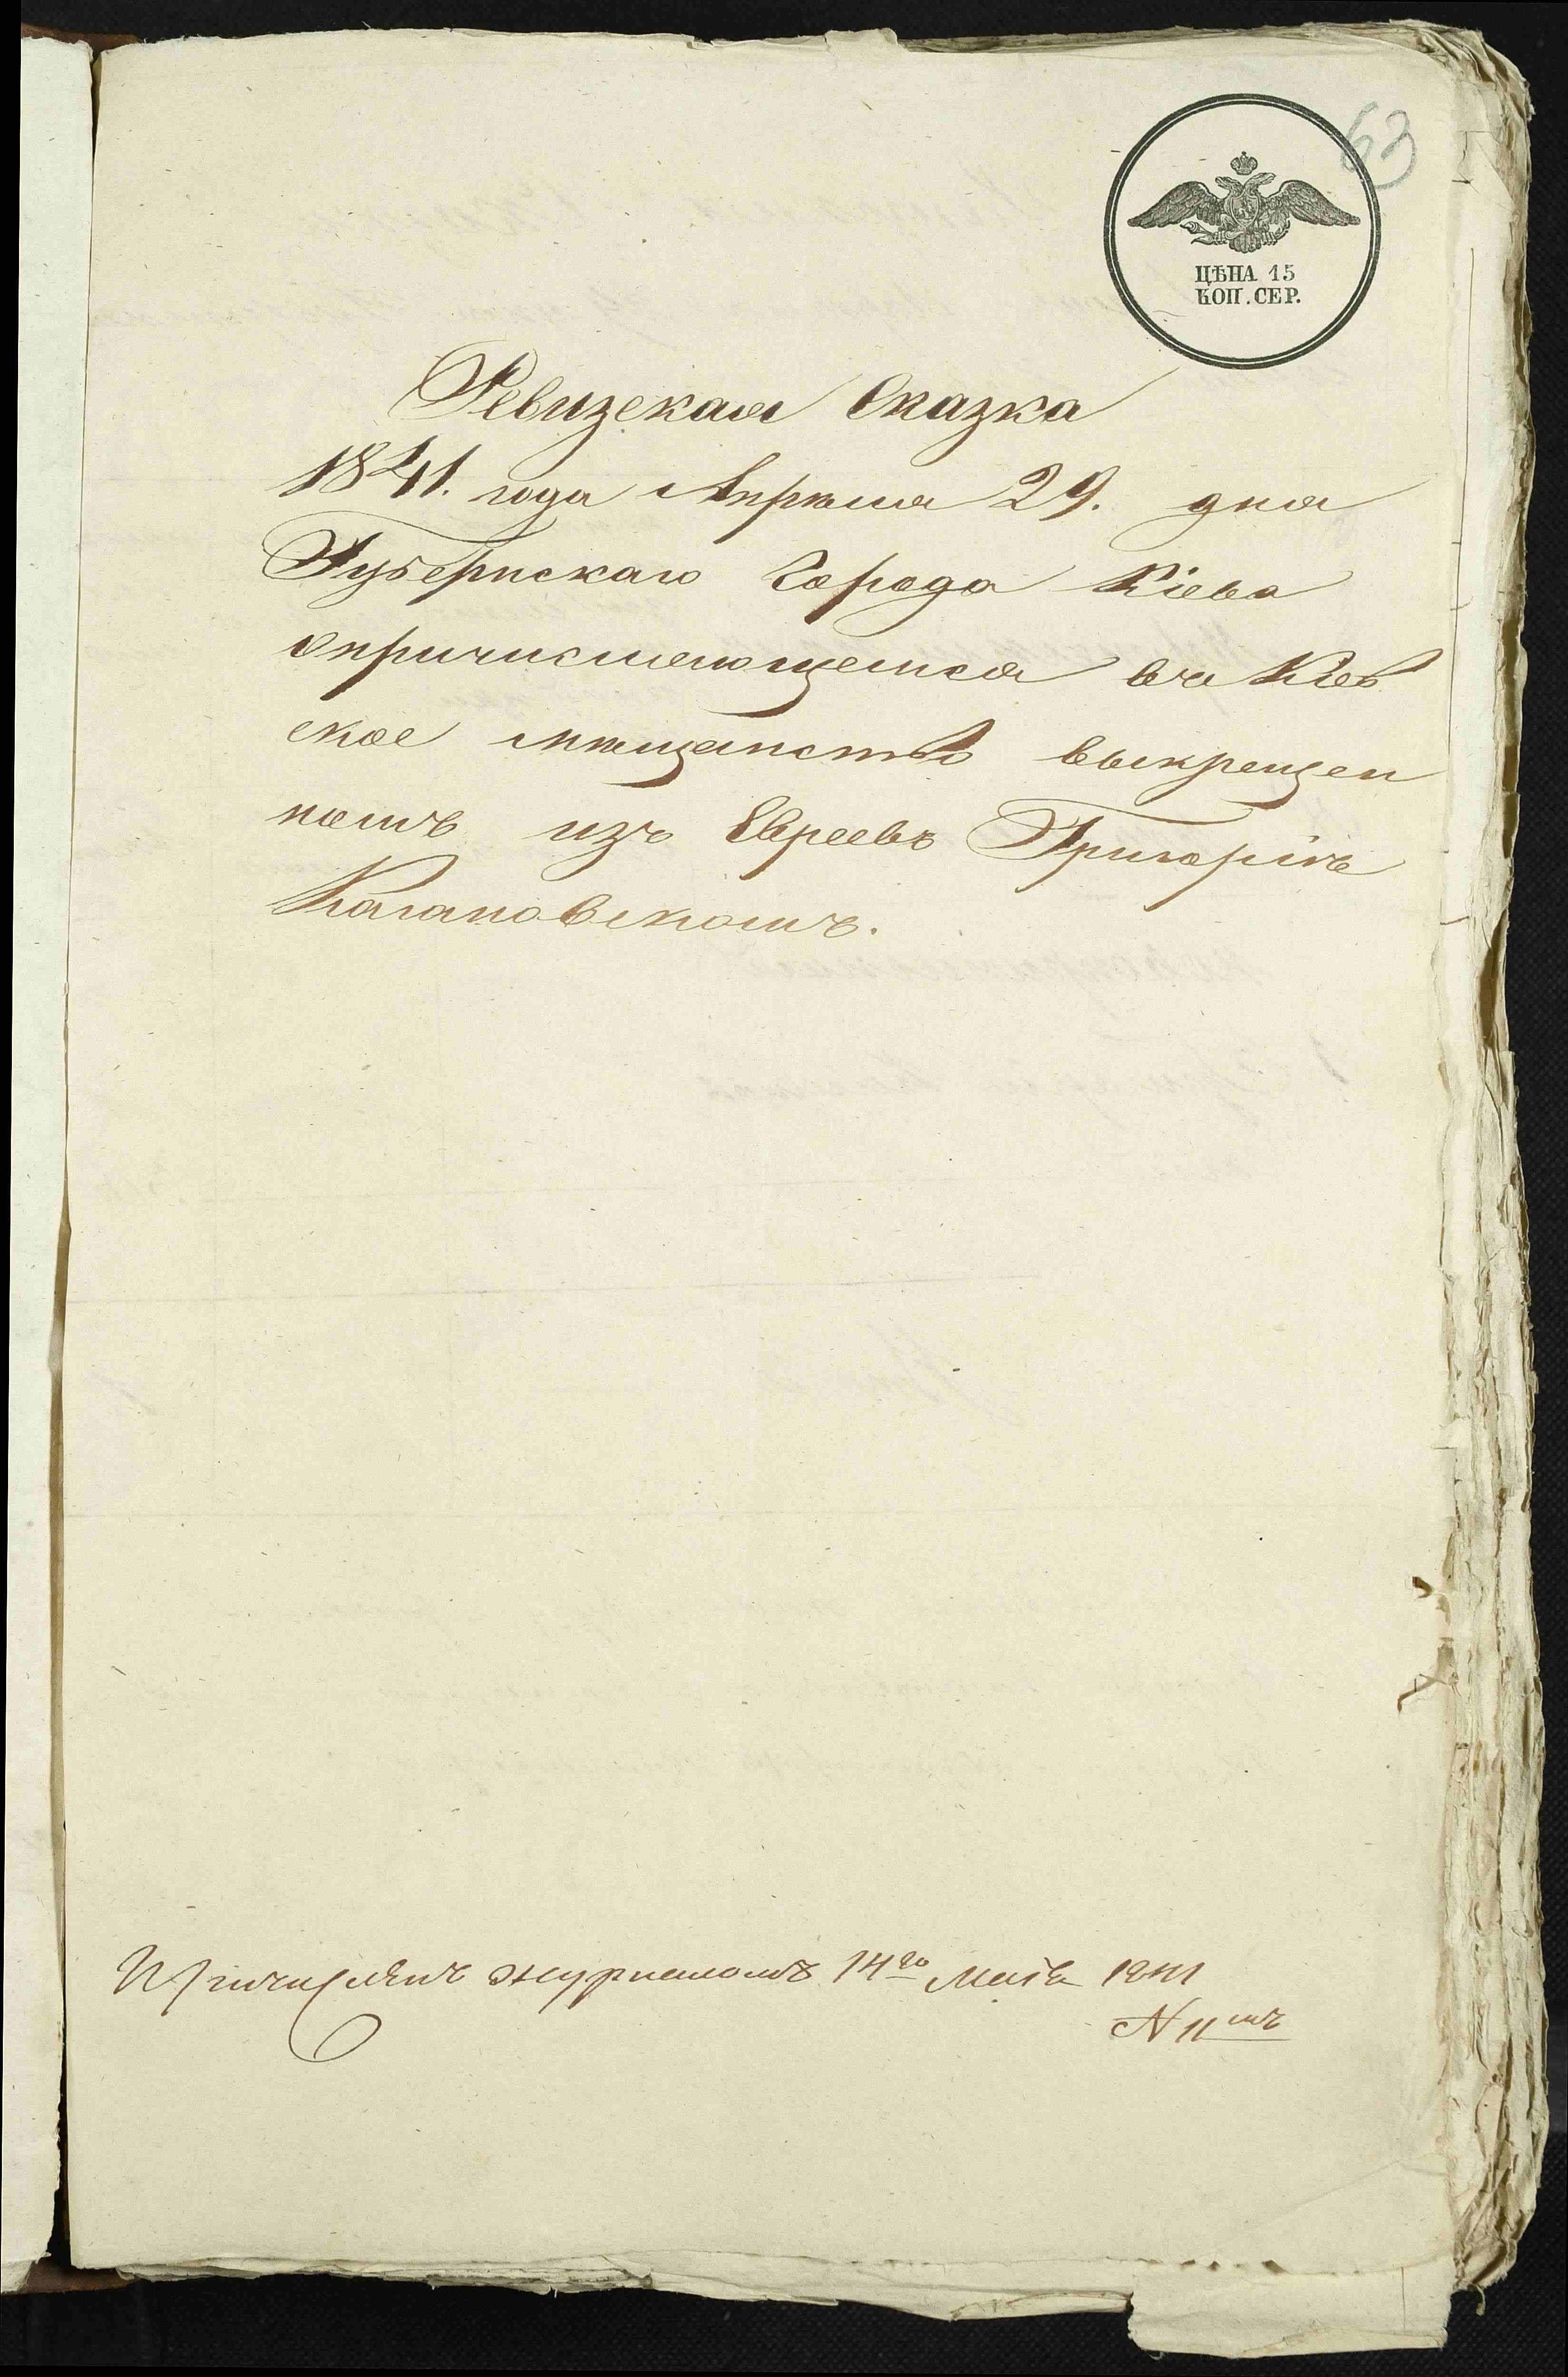 63
ЦѢНА 15
КОП. СЕР.
Ревизская Сказка
1841. года Апрѣля 29. дня
Губернскаго Города Кіева
опричисляющемся въ Кіев
ское мѣщанство выкрещен
номъ изъ Евреевъ Григоріѣ
Кагановскомъ.
Причисленъ журналомъ 14го Маія 1841
N 11мъ